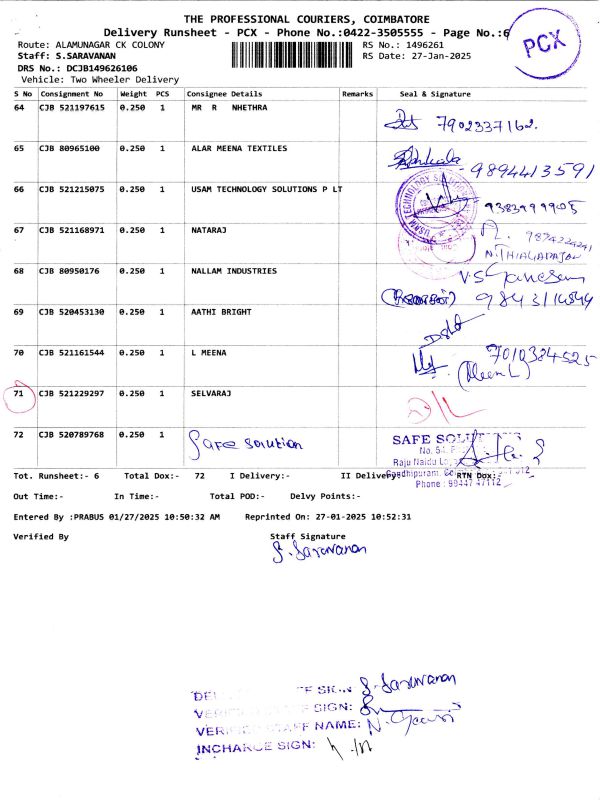 THE PROFESSIONAL COURIERS, COIMBATORE
Delivery Runsheet - PCX - Phone No.:0422-3505555 - Page No.:6
PCX
Route: ALAMUNAGAR CK COLONY
RS No.: 1496261
Staff: S.SARAVANAN
RS Date: 27-Jan-2025
DRS No.: DCJB149626106
Vehicle: Two Wheeler Delivery
S No Consignment No Weight PCS Consignee Details Remarks Seal & Signature
64 CJB 521197615 0.250 1 MR R NHETHRA
7902337162.
65 CJB 80965100 0.250 1 ALAR MEENA TEXTILES
9894413591
66 CJB 521215075 0.250 1 USAM TECHNOLOGY SOLUTIONS P LT
9383999905
67 CJB 521168971 0.250 1 NATARAJ
N.THIAGARAJAN
68 CJB 80950176 0.250 1 NALLAM INDUSTRIES
V.S Ganesan
69 CJB 520453130 0.250 1 AATHI BRIGHT
70 CJB 521161544 0.250 1 L MEENA
7010384525
(Meena L)
71 CJB 521229297 0.250 1 SELVARAJ
72 CJB 520789768 0.250 1 Safe Solution
SAFE
Raju Naidu
Gandhipuram,
Phone : 99447 47112
Tot. Runsheet:- 6 Total Dox:- 72 I Delivery:- II Delivery:- RTN Dox:-
Out Time:- In Time:- Total POD:- Delvy Points:-
Entered By :PRABUS 01/27/2025 10:50:32 AM Reprinted On: 27-01-2025 10:52:31
Verified By Staff Signature
S. Saravanan
SIGN: S. Saravanan
SIGN:
VERIFIED STAFF NAME: N. Gowri
INCHARGE SIGN: